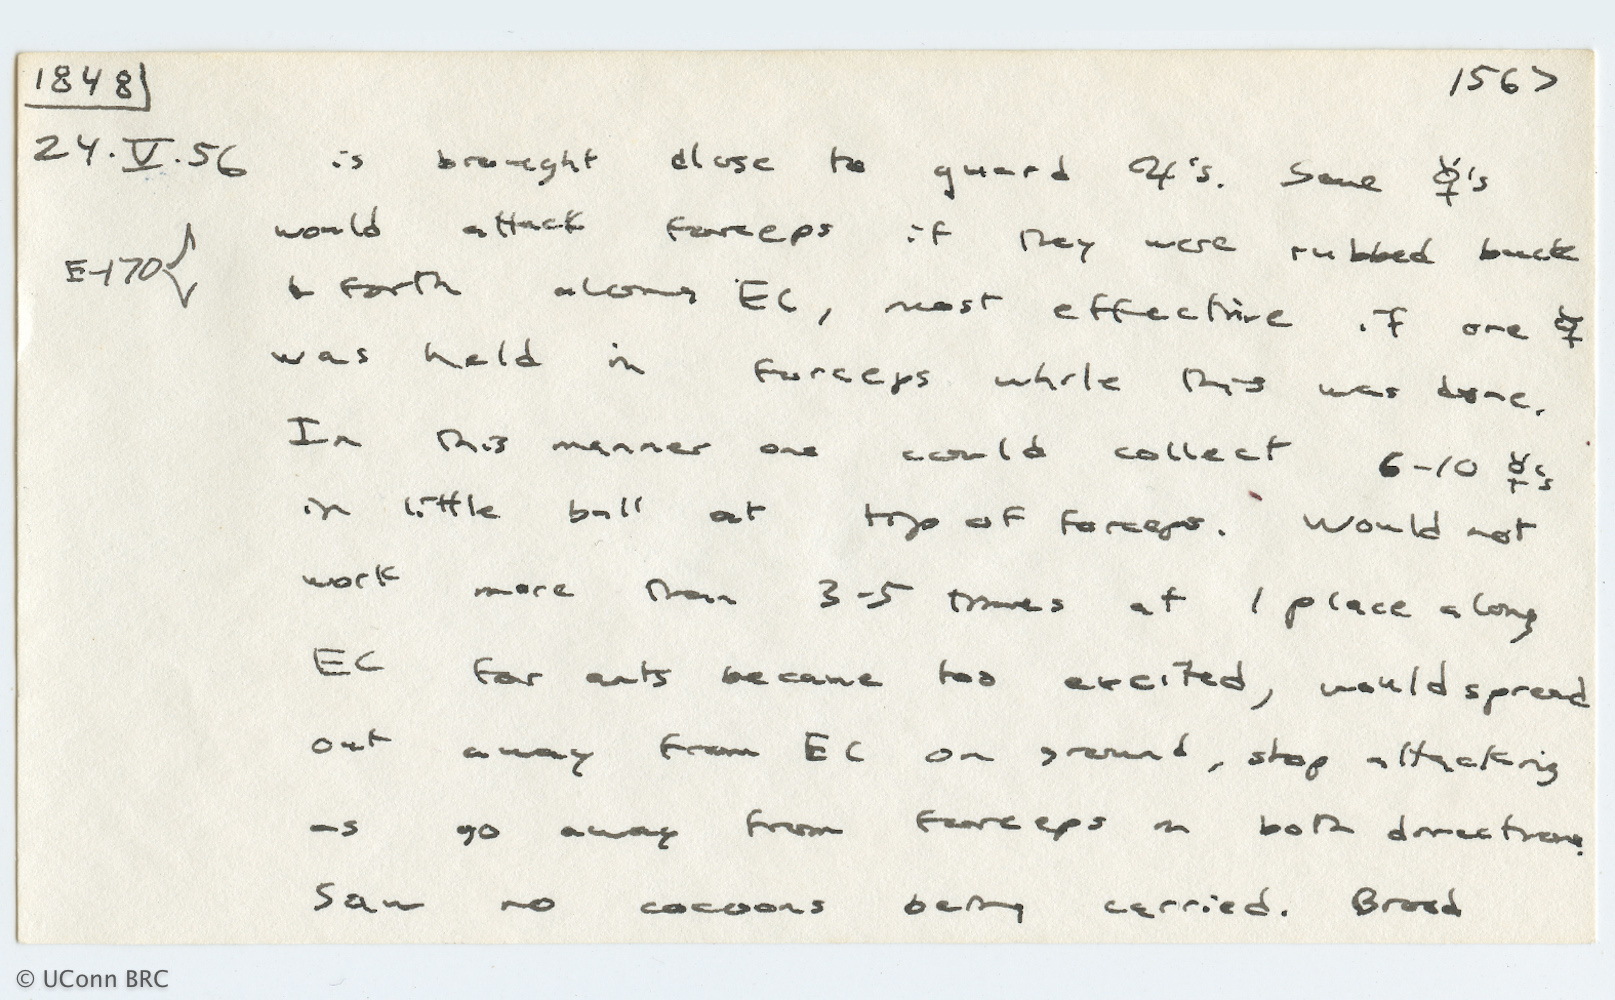 1848 156>
24.V.56 is brought close to guard 4's. Some ☿'s
would attack forceps if they were rubbed back
E-170 & forth along EC, most effective if one ☿
was held in forceps while this was done.
In this manner one could collect 6-10 ☿s
in little ball at tip of forceps. Would not
work more than 3-5 times at 1 place along
EC for ants became too excited, would spread
out away from EC on ground, stop attacking
as go away from forceps in both directions.
Saw no cocoons being carried. Brood
© UConn BRC